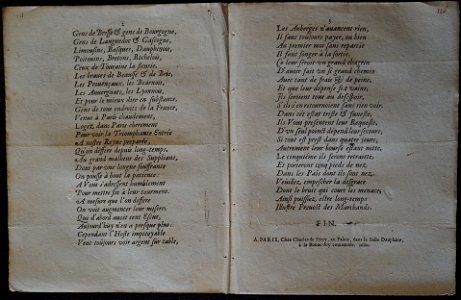 2
Gens de Bresse & gens de Bourgogne,
Gens de Languedoc & Gascogne,
Limousins, Basques, Dauphinois,
Poitevins, Bretons, Rochelois,
Ceux de Touraine la
Les braves de Beausse & de Brie,
Les Provençaux, les Bearnois,
Les Auvergnats, les Lyonnois,
Et pour le mieux dire en substance,
Gens de tous endroits de la France,
Venus à Paris chaudement,
Logez dans Paris cherement
Pour voir la Triomphante Entrée
A nostre Reyne preparée,
Qu'on differe depuis long-temps,
Au grand malheur des Supplians,
Dont par une longue souffrance
On pousse à bout la patience:
A Vous s'adressent humblement
Pour mettre fin à leur tourment.
A mesure que l'on differe
On voit augmenter leur misere,
Qui d'abord avoit cent Escus,
Aujourd'huy n'en a presque plus:
Cependant l'Hoste impitoyable
Veut toujours voir argent sur table,
3
Les Auberges n'avancent rien,
Il faut toujours payer, ou bien
Au premier mot sans repartie
Il faut songer à la sortie.
Ce leur seroit un grand chagrin
D'avoir fait un si grand chemin
Avec tant de frais & de peines,
Et que leur dépense fut vaine;
Ils seroient tous au desespoir,
S'ils s'en retournoient sans rien voir.
Dans cet estat triste & funeste,
Ils Vous presentent leur Requeste,
D'un seul point dépend leur secours,
Si tout est prest dans quatre jours,
Autrement leur bourse estant nette,
Le cinquiéme ils feront retraitte,
Et porteront cinq pieds de nez
Dans les Païs dont ils sont nez.
Veüillez empescher la disgrace
Dont le bruit qui court les menace;
Ainsi puissiez estre long-temps
Illustre Prevost des Marchands.
FIN.
A PARIS, Chez Charles de Sercy, au Palais, dans la Salle Dauphine,
à la Bonne-foy couronnée. 1660.